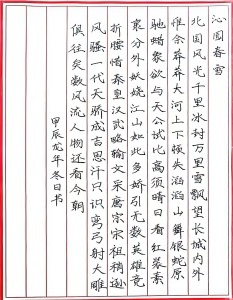 沁园春雪
北国风光千里冰封万里雪飘望长城内外
惟余莽莽大河上下顿失滔滔山舞银蛇原
驰蜡象欲与天公试比高须晴日看红装素
裹分外妖娆江山如此多娇引无数英雄竞
折腰惜秦皇汉武略输文采唐宗宋祖稍逊
风骚一代天骄成吉思汗只识弯弓射大雕
俱往矣数风流人物还看今朝
甲辰龙年冬日书